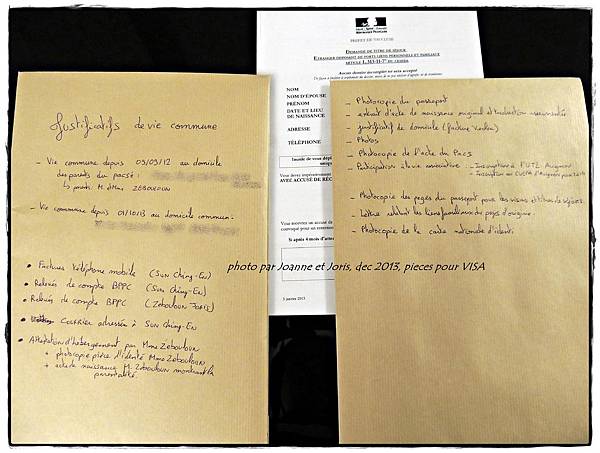 Justificatifs de vie commune
- Vie commune depuis 03/09/12 au domicile
des parents du pacsé :
↳ parents M. et Mme ZEBOULOUN
- Vie commune depuis 01/10/13 au domicile commun :
• Factures téléphone mobile (SUN Ching-En)
• Relevés de compte BPPC (SUN Ching-En)
• Relevés de compte BPPC (ZEBOULOUN JORIS)
• Courrier adressée à SUN Ching-En
• Attestation d'hébergement par Mme Zebouloun
+ photocopie pièce d'identité Mme ZEBOULOUN
+ acte de naissance M. ZEBOULOUN montrant la
parentalité.
RÉPUBLIQUE FRANÇAISE
PREFET DE VAUCLUSE
DEMANDE DE TITRE DE SÉJOUR
ETRANGER DISPOSANT DE FORTS LIENS PERSONNELS ET FAMILIAUX
ARTICLE L 313-11-7° DU CESEDA
Aucun dossier incomplet ne sera accepté
NOM
NOM D'ÉPOUSE
PRÉNOM
DATE ET LIEU
DE NAISSANCE
ADRESSE
TÉLÉPHONE
Inutile de vous dépl
Vous devez impérativement
AVEC ACCUSÉ DE RÉC
Vous recevrez un accusé de
convoqué pour un
Si après 4 mois d'attente
3 janvier 2013
- Photocopie du passeport
- extrait d'acte de naissance original et traduction assermentée
- justificatif de domicile (facture
- Photos
- Photocopie de l'acte du Pacs
- Participation à la vie associative : - Inscription à l'UTL Avignon
- Inscription au
- Photocopie des pages du passeport pour les visas et titres de séjours.
- Lettre relatant les liens familiaux du pays d'origine.
- Photocopie de la carte nationale d'identi
photo par Joanne et Joris, dec 2013, pieces pour VISA